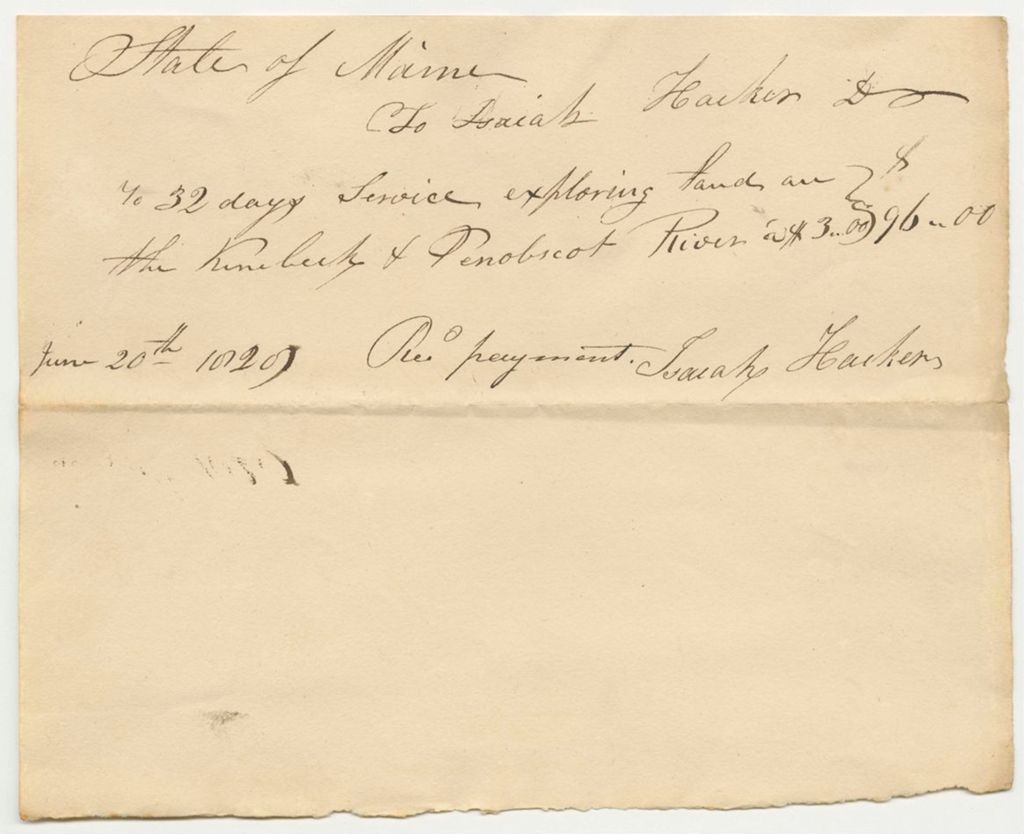 State of Maine
To Isaiah Hacker Dr
To 32 days Service exploring land on $
the Kinebeck & Penobscot River @ $3.00 96.00
June 20th 1829 Recd payment. Isaiah Hacker